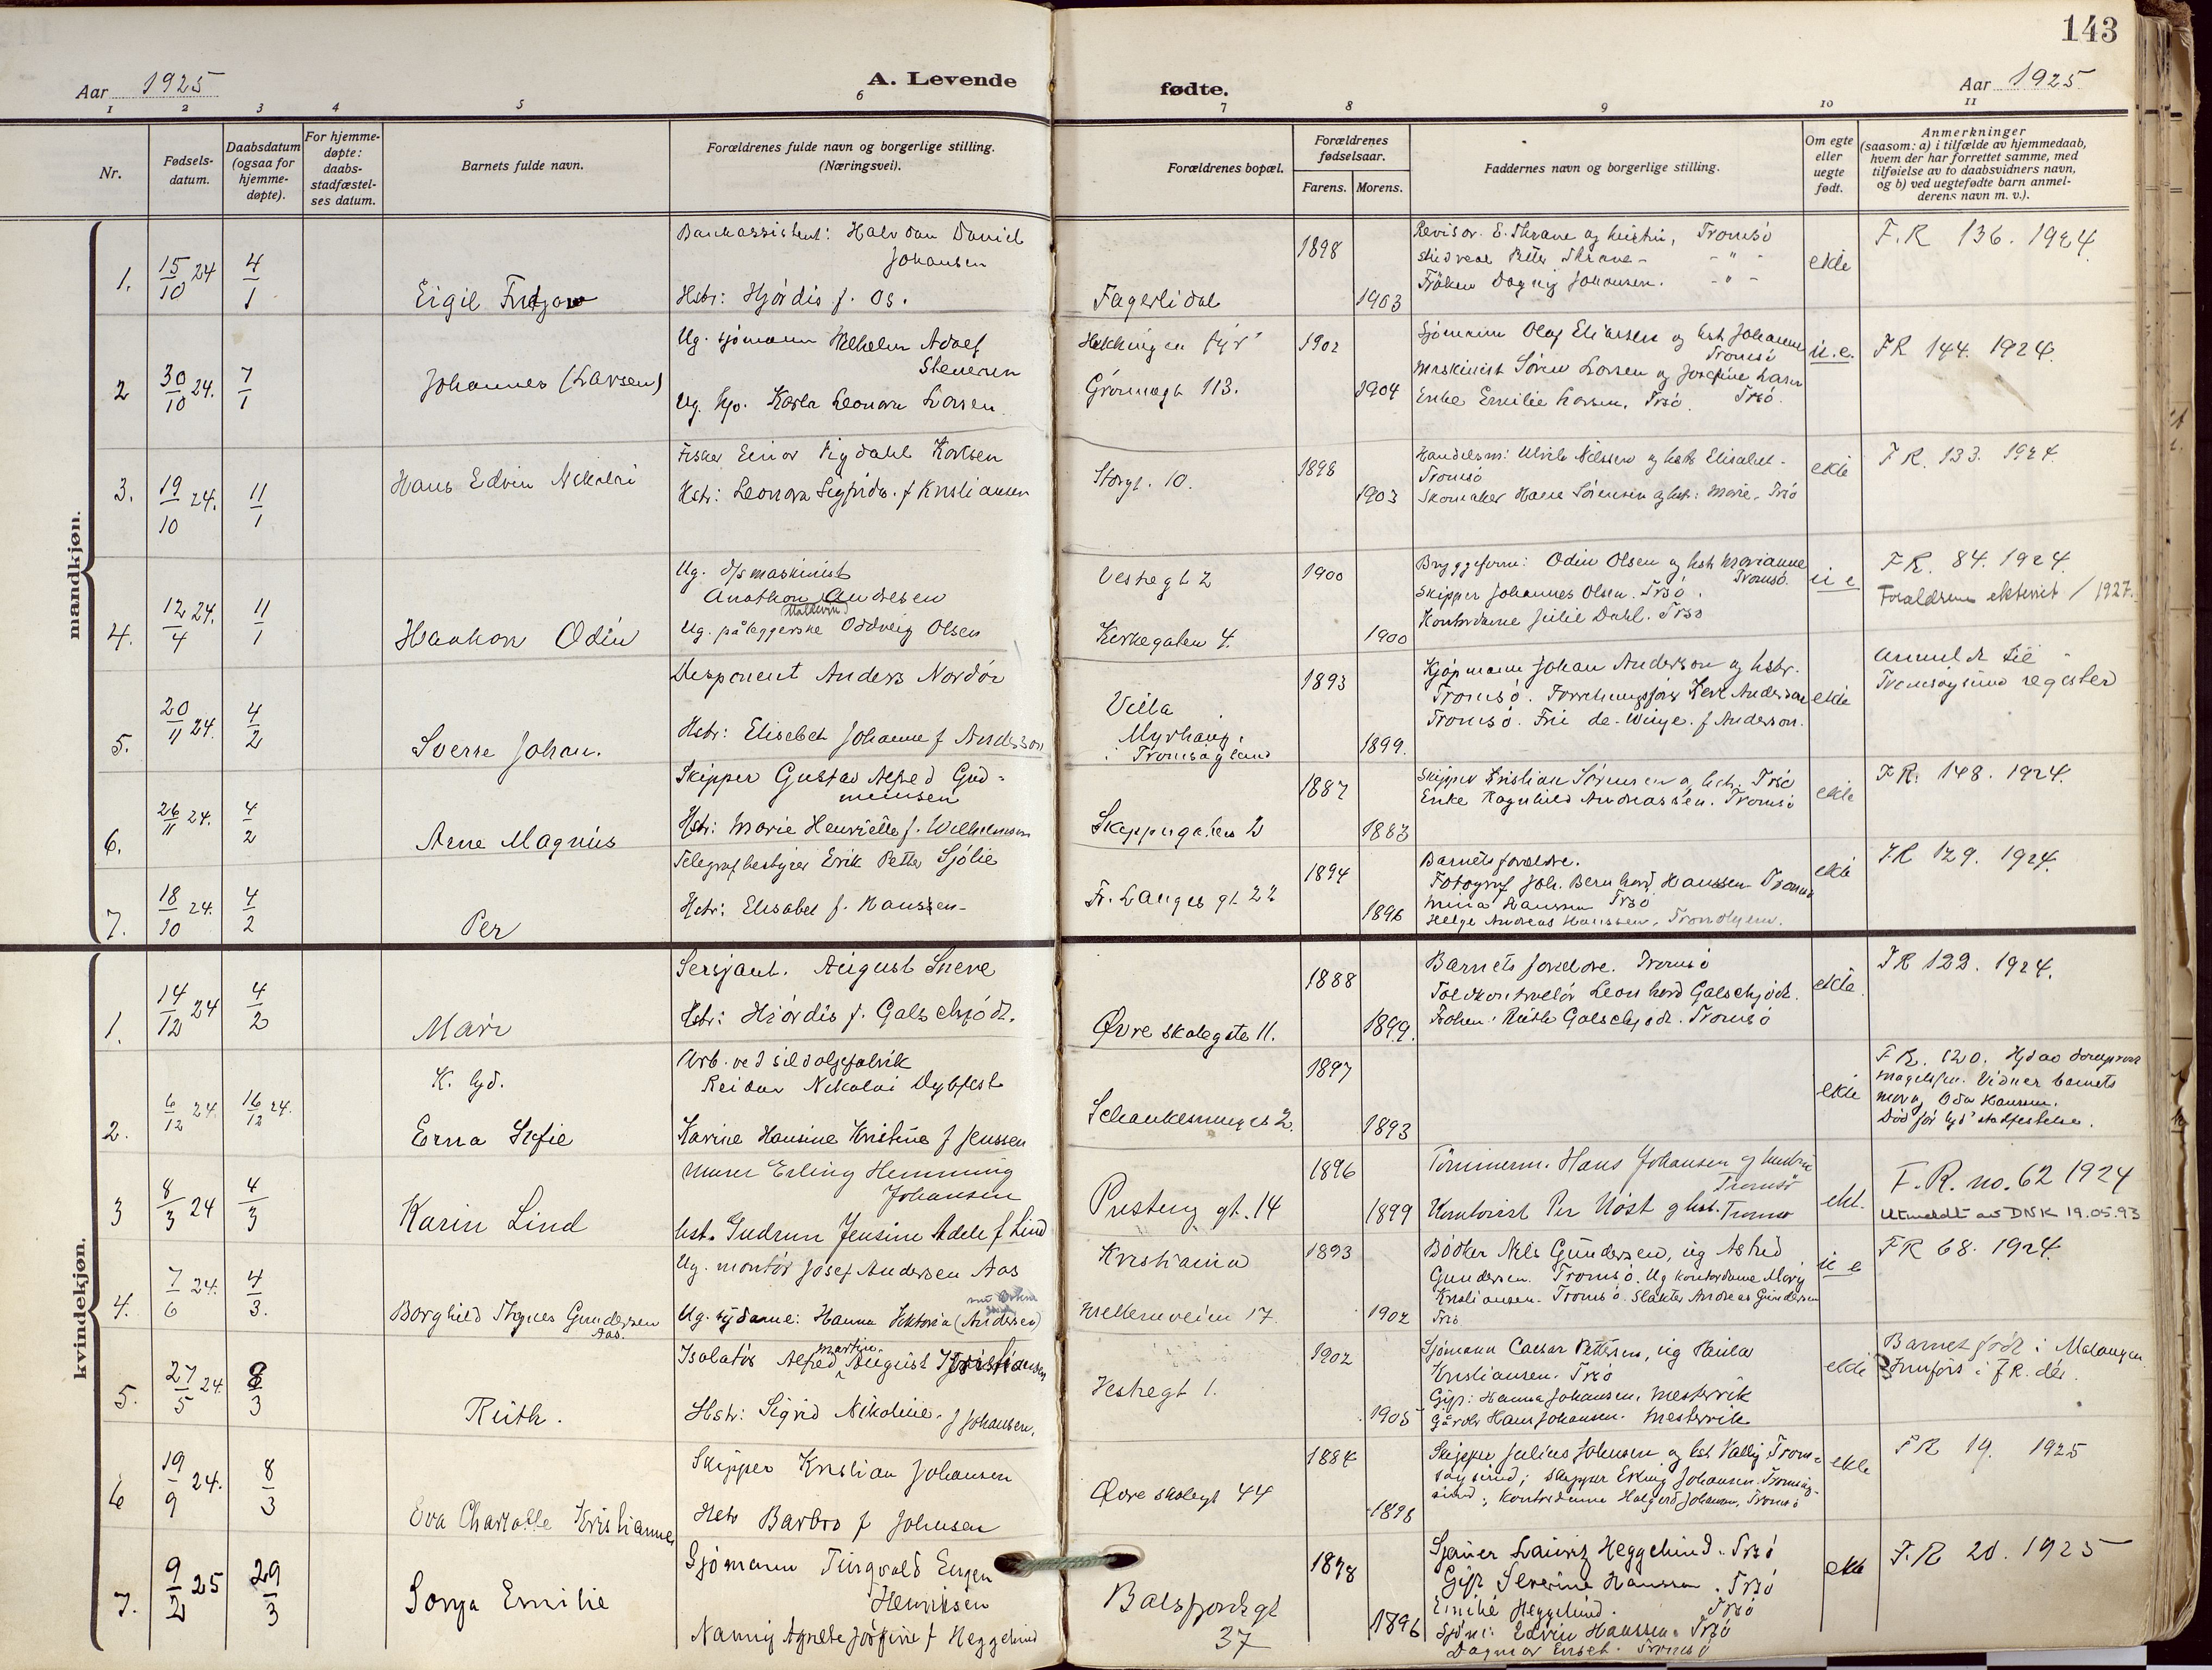 143
Aar 1925
A. Levende
fødte.
Aar 1925
1 2 3 4 5 6 7 8 9 10 11
Nr.
Fødsels-
datum.
Daabsdatum
(ogsaa for
hjemme-
døpte).
For hjemme-
døpte:
daabs-
stadfæstel-
ses datum.
Barnets fulde navn.
Forældrenes fulde navn og borgerlige stilling.
(Næringsvei).
Forældrenes bopæl.
Forældrenes
fødselsaar.
Farens. Morens.
Faddernes navn og borgerlige stilling.
Om egte
eller
uegte
født.
Anmerkninger
(saasom: a) i tilfælde av hjemmedaab,
hvem der har forrettet samme, med
tilføielse av to daabsvidners navn,
og b) ved uegtefødte barn anmel-
derens navn m. v.).
mandkjøn.
1. 15/10 24 4/1
Eigil
Bankassistent: Halvdan Daniel
Johansen
Hstr: Hjördis f. Os.
Fagerlidal
1898
1903
Revisor. E. Thrane og hustru, Tromsö
Peter Thrane - " -
Fröken Dagny Johansen. - " -
ekte
F.R 136. 1924
2 30/10 24. 7/1
Johannes (Larsen)
Ug. sjömann Wilhelm Adolf
Stenersen
Ug. Karla Leonora Larsen
Hekkingen fyr
Grönnegt 113.
1902
1904
Sjömann Olaf Eliassen og hst Johanne
Tromsö
Maskinist Sören Larsen og Josefine Larsen
Enke Emilie Larsen. Trsö. Trsö.
u.e.
FR 144. 1924.
3. 19/10 24. 11/1
Hans Edvin Nikolai
Fisker Einar Vigdahl Karlsen
Hstr: Leonora Sigfrida. f Kristiansen
Storgt. 10.
1898
1903
Handelsm: Ulrik Nilssen og hstr Elisabet -
Tromsö
Skomaker Hans Sörensen og hst: Marie. Trsö
ekte
FR. 133. 1924.
4. 12/4 24. 11/1
Haakon Odin
Ug. d/s maskinist
Anathon Andresen
Ug. påleggerske Oddveig Olsen
Vestregt 2
Kirkegaten 4.
1900
1900
Bryggeform: Odin Olsen og hst Marianne
Tromsö.
Skipper Johannes Olsen. Trsö.
Kontordame Julie Dahl. Trsö
u e
FR. 84. 1924.
Foreldrene ektevіet / 1927.
5. 20/11 24. 4/2
Sverre Johan.
Disponent Anders Nordör
Hstr: Elisebet Johanne f Anderson
Villa
Myrhaug
i Tromsöysund
1893
1899.
Kjöpmann Johan Anderson og hstr.
Tromsö. Forretningsförer Karl Anderson
Tromsö. Fru de-Winge. f Anderson.
ekte
Anmeldt til
Tromsöysund register
6. 26/11 24. 4/2
Arne Magnus
Skipper Gustav Alfred Gud-
mundsen
Hstr: Marie Henriette f. Wilhelmsen
Skippergaten 2
1887
1883
Skipper Kristian Sörensen og hstr. Trsö
Enke Ragnhild Andreassen. Tromsö
ekte
FR. 148. 1924.
7. 18/10 24. 4/2
Per
Telegrafbestyrer Erik Petter Sjölie
Hstr: Elisabet f. Hanssen -
Fr. Langes gt 22
1894
1896
Barnets foreldre.
Fotograf Joh. Bernhard Hanssen Tromsö
Mina Hanssen Trsö
Helge Andreas Hanssen, Trondhjem.
ekte
FR 129. 1924.
kvindekjøn.
1. 14/12 24 4/2
Mari
Sersjant. August Sneve
Hstr: Hjördis f. Galschjödt.
Øvre skolegate 11.
1888
1899.
Barnets foreldre. Tromsö
Toldkontrollör Leonhard Galschjödt.
Fröken: Ruth Galschjödt. Tromsö
ekte
FR 122. 1924.
2. 6/12 24. 16/12 24.
K. lyd.
Erna Sofie
Arb. ved sildoljefabrik
Reidar Nikolai Dybfest
Karine Hansine Kristine f Jenssen
2.
1897
1893
ekte
FR. 120. Hjd av domprost
Vidner barnets
mor og Oda Hansen.
Död før stadfestelse.
3 8/3 24 4/3
Karin Lind
Murer Erling Hemming
Johansen
hst. Gudrun Jensine Adele f Lind
Presteng gt. 14
1896
1899
Tömmerm. Hans Johansen og hustru
Tromsö
Kontorist Per Nöst og hst. Tromsö
ekt.
F.R. no. 62 1924
Utmeldt av DNK 19.05.93
4. 7/6 24. 4/3.
Borghild Agnes Gundersen
Aas.
Ug. montör Josef Andersen Aas
Ug. sydame: Hanna Viktoria (Andersen)
Kristiania
Mellemveien 17.
1893
1902
Bödker Nils Gundersen, ug Astrid
Gundersen. Tromsö. Ug kontordame Mary
Kristiansen. Tromsö. Slakter Andreas Gundersen
Trsö
u e
FR 68. 1924.
5. 27/5 24. 8/3
Ruth.
Isolatör Alfred Martin August Kristiansen
Hstr: Sigrid Nikoline. f Johansen.
Vestregt 1.
1902
1905
Sjömann Caesar Pettersen, ug Paula
Kristiansen. Trsö
Gift: Hanna Johansen, Mestervik
Gårdbr Hans Johansen. Mestervik
ekte
Barnet födt i Malangen
Innförs i FR. der.
6 19/9 24. 8/3
Eva Charlotte Kristianne
Skipper Kristian Johansen
Hstr Barbro f Johnsen
Øvre skolegt 44
1884
1898
Skipper Julius Johansen og hst Valley Troms-
öysund; skipper Erling Johansen Tromsöy-
sund; Kontordame Halgerd Johansen, Tromsö
ekte
FR 19. 1925
7. 9/2 25 29/3
Sonja Emilie
Sjömann Eugen
Henriksen
Nanny Agnethe Josefine f Heggelund
Balsfjordgt
37
1878
1896
Sjauer Lauriz Heggelund. Trsö
Gift Severine Hanssen. Trsö
Emilie Heggelund. Trsö
Sjöm: Edvin Hanssen. Trsö
Dagmar Tromsö
ekte
F.R 20. 1925